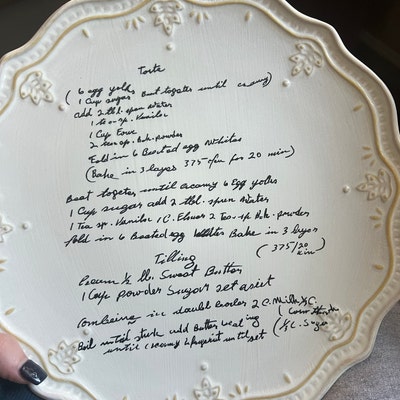 Torte
( 6 egg yolks
1 Cup sugar Beat togeter until creamy)
add 2 tbl. spun Water
1 tea sp. Vanilor
1 Cup Flour
2 teasp. Bak. powder
Fold in 6 Beated egg Whites
(Bake in 3 layes 375 for 20 min)
Beat togeter until creamy 6 Egg yolks
1 Cup sugar add 2 tbl. spun Water
1 Tea sp. Vanilor 1 C. Flower 2 Tea-sp Bak. powder
fold in 6 Beated egg Bake in 3 layes
(375/20 min)
Filling
Cream 1/2 lb. Sweat Butter
1 Cup powder Sugar set asiet
Combeine in doubl boiler 2 C. Milk 1/2 C.
Boil until add Butter (Corn
until creamy (1/2 C. Sugar
until set